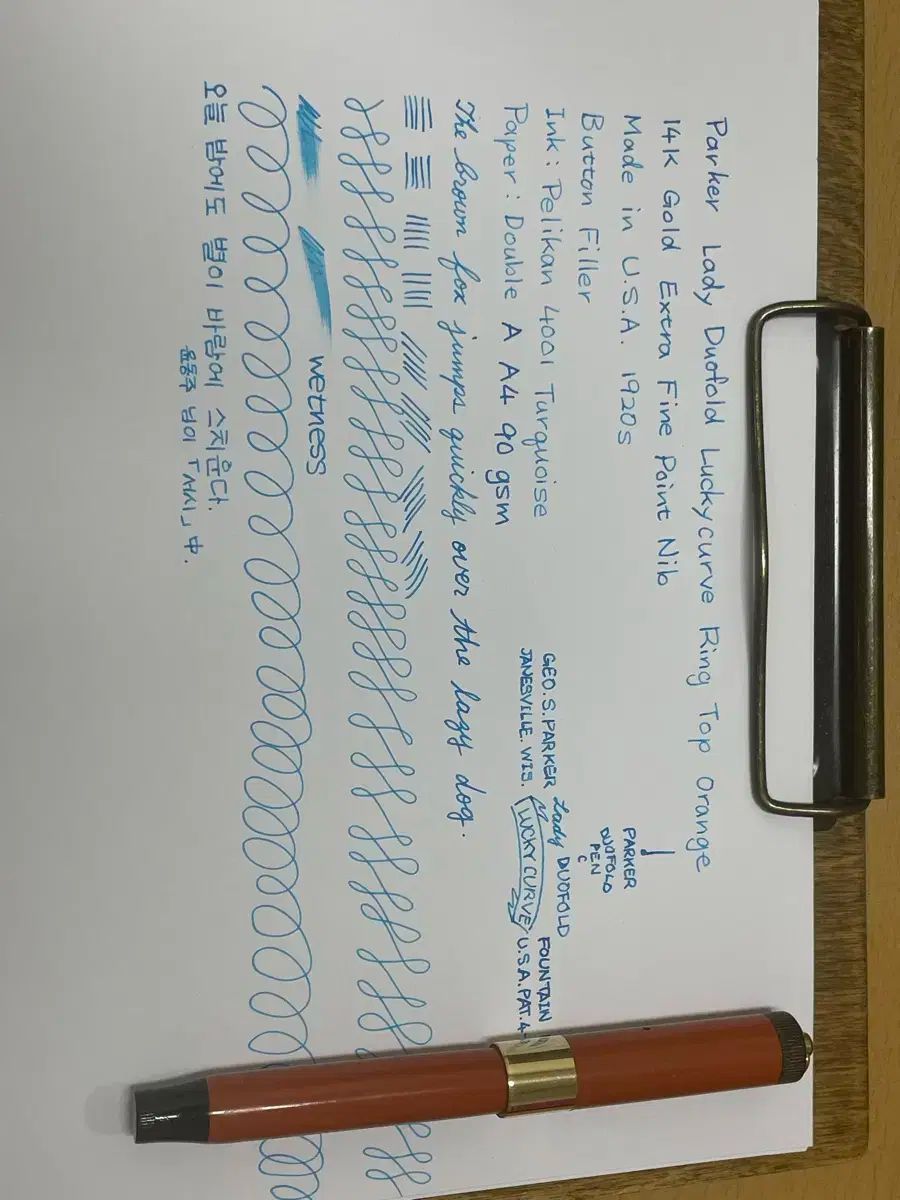 Parker Lady Duofold Luckycurve Ring Top Orange
14K Gold Extra Fine Point Nib
Made in U.S.A. 1920s
Button Filler
Ink : Pelikan 4001 Turquoise
Paper : Double A A4 90 gsm
PARKER
DUOFOLD
PEN
C
GEO. S. PARKER Lady DUOFOLD FOUNTAIN
JANESVILLE. WIS. LUCKY CURVE U.S.A. PAT. 4-
The brown fox jumps quickly over the lazy dog.
wetness
오늘 밤에도 별이 바람에 스치운다.
윤동주 님이 「서시」 中.